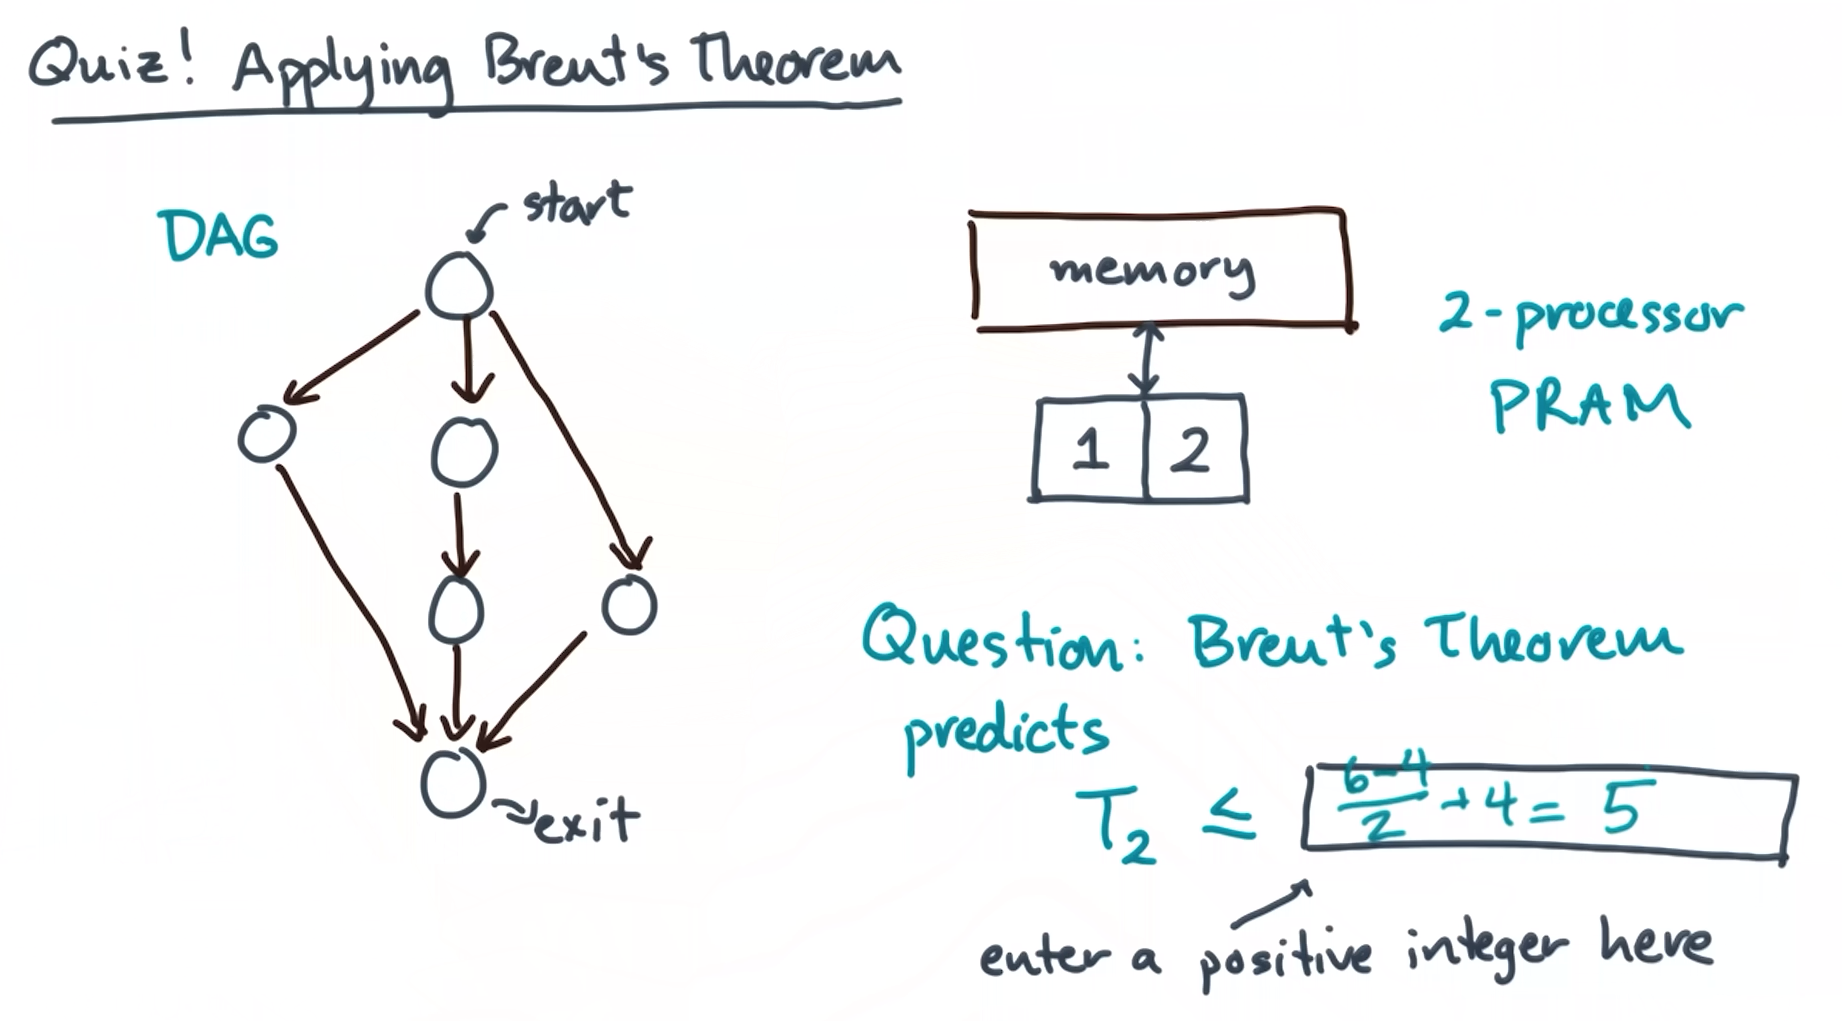 Quiz! Applying Brent's Theorem
start
DAG
memory
2-processor
PRAM
1 2
Question: Brent's Theorem
predicts
T₂ ≤ (6-4)/2 + 4 = 5
exit
enter a positive integer here